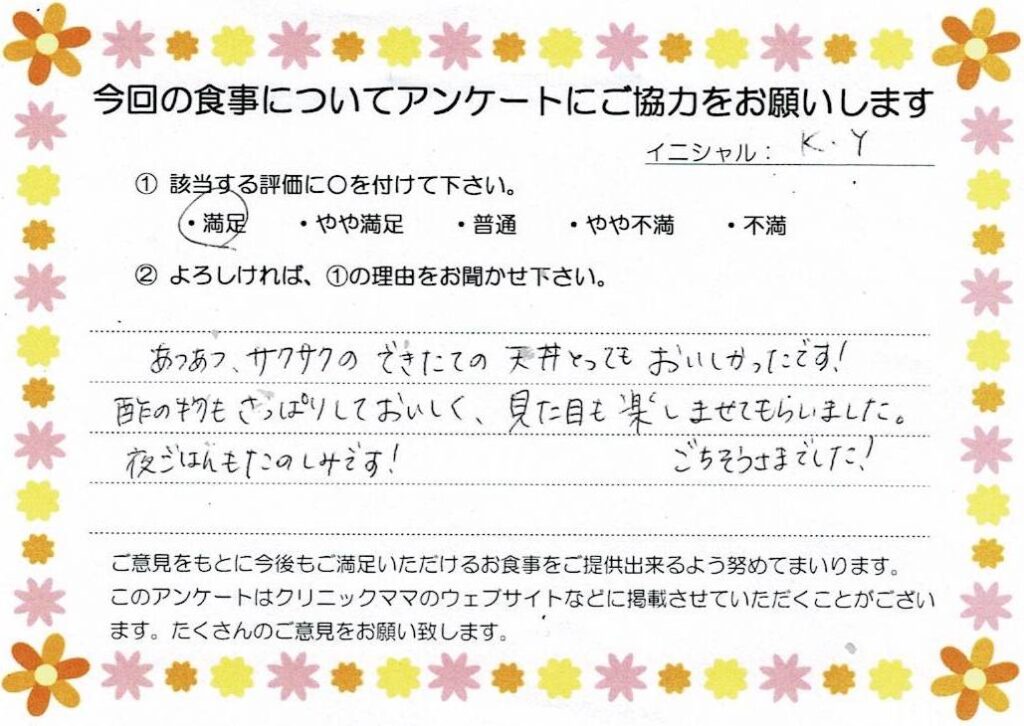 今回の食事についてアンケートにご協力をお願いします
イニシャル： K.Y
① 該当する評価に〇を付けて下さい。
・満足 ・やや満足 ・普通 ・やや不満 ・不満
② よろしければ、①の理由をお聞かせ下さい。
あつあつ、サクサクの できたての 天丼とっても おいしかったです!
酢の物もさっぱりしておいしく、見た目も楽しませてもらいました。
夜ごはんもたのしみです! ごちそうさまでした!
ご意見をもとに今後もご満足いただけるお食事をご提供出来るよう努めてまいります。
このアンケートはクリニックママのウェブサイトなどに掲載させていただくことがござい
ます。たくさんのご意見をお願い致します。